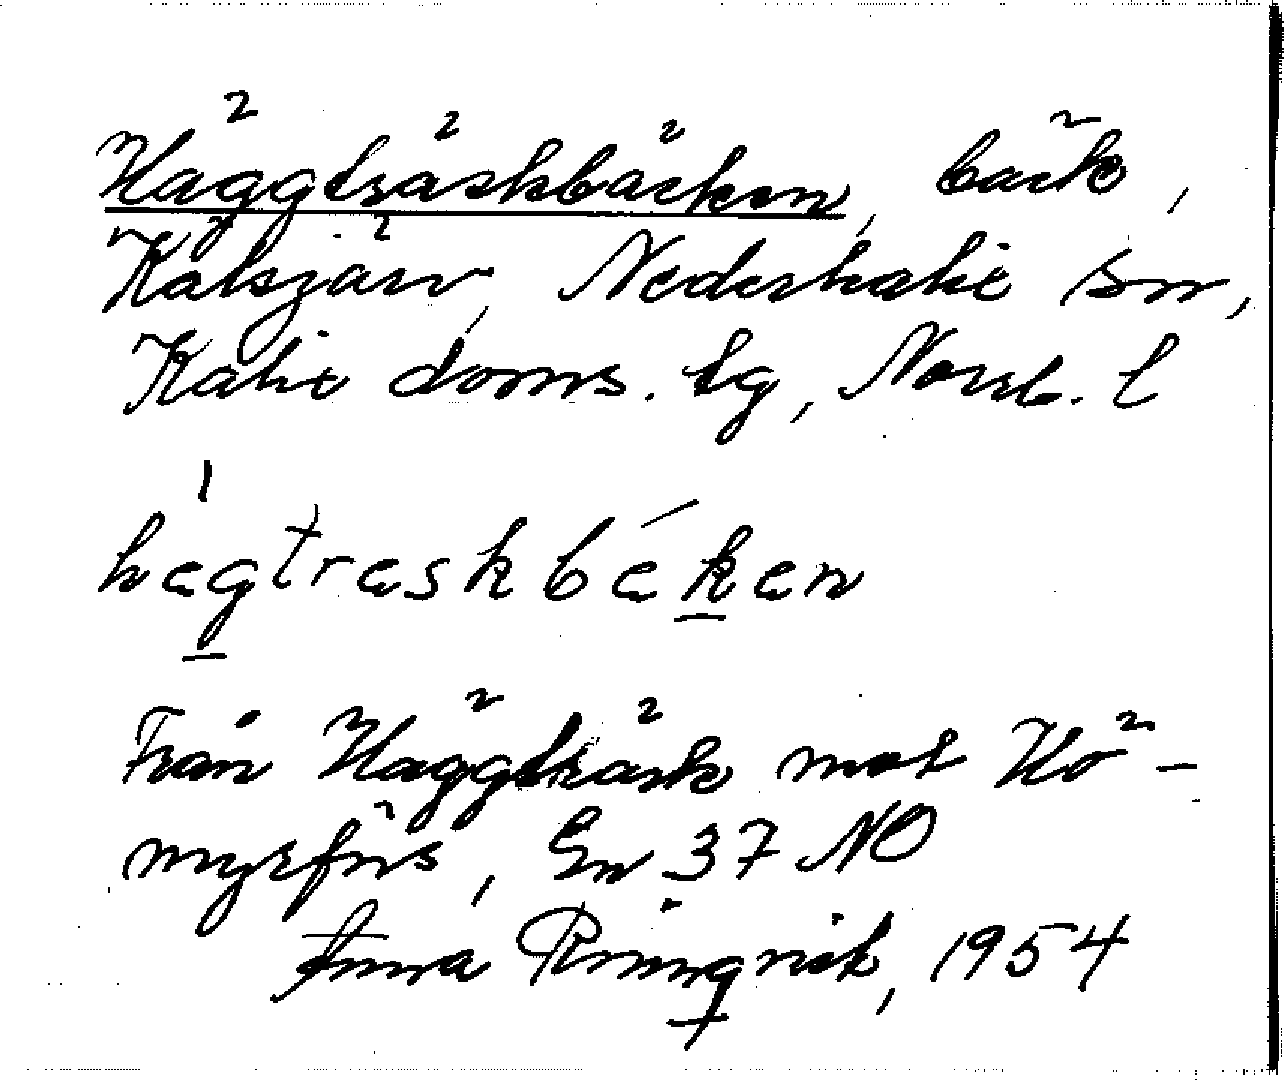 Häggträskbäcken, bäck,
Kälsjärv, Nederkalix sn,
Kalix doms. lg, Norrb. l
hegtreskbeken
Från Häggträsk mot Hö-
myrfors, En 37 NO
Anna Ringqvist, 1954